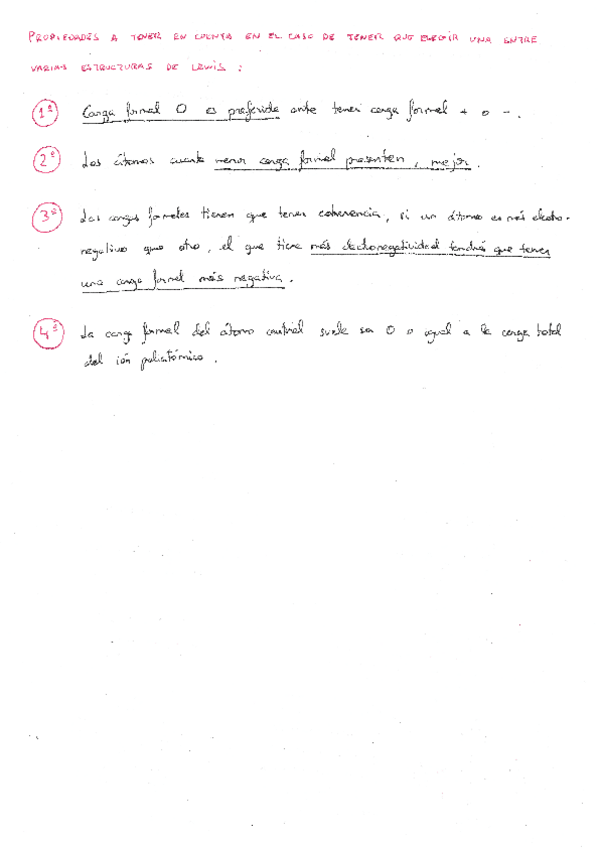 PROPIEDADES A TENER EN CUENTA EN EL CASO DE TENER QUE ELEGIR UNA ENTRE
VARIAS ESTRUCTURAS DE LEWIS :
1ª Carga formal 0 es preferida ante tener carga formal + o - .
2ª Los átomos cuanta menor carga formal presenten, mejor.
3ª Las cargas formales tienen que tener coherencia, si un átomo es más electro-
negativo que otro, el que tiene más electronegatividad tendrá que tener
una carga formal más negativa.
4ª La carga formal del átomo central suele ser 0 o igual a la carga total
del ión poliatómico.